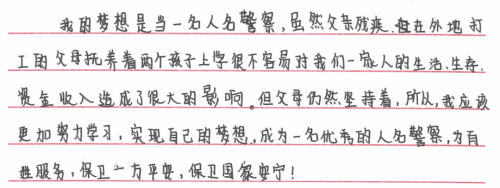 我的梦想是当一名人名警察，虽然父亲残疾，但在外地打
工的父母抚养着两个孩子上学很不容易对我们一家人的生活、生存、
资金收入造成了很大的影响。但父母仍然坚持着，所以，我应该
更加努力学习，实现自己的梦想，成为一名优秀的人名警察，为百
姓服务，保卫一方平安，保卫国家安宁！